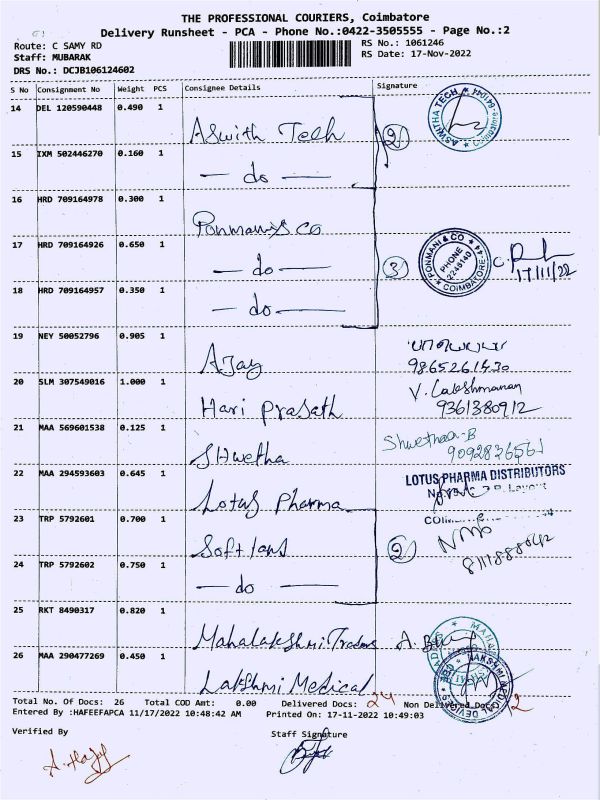 THE PROFESSIONAL COURIERS, Coimbatore
Delivery Runsheet - PCA - Phone No.:0422-3505555 - Page No.:2
Route: C SAMY RD
Staff: MUBARAK
DRS No.: DCJB106124602
RS No.: 1061246
RS Date: 17-Nov-2022
S No Consignment No Weight PCS Consignee Details Signature
14 DEL 120590448 0.490 1 Aswith Tech ② ASWITHA TECH Coimbatore
15 IXM 502446270 0.160 1 — do —
16 HRD 709164978 0.300 1 Ponmanys CO
17 HRD 709164926 0.650 1 — do — ③ PONMANI & CO PHONE 2245140 COIMBATORE-44 17/11/22
18 HRD 709164957 0.350 1 — do —
19 NEY 50052796 0.905 1 AJay 9865261430
20 SLM 307549016 1.000 1 Hari prasath V. Lakshmanan 9361380912
21 MAA 569601538 0.125 1 SHwetha Shwethaa-B 9092836561
22 MAA 294593603 0.645 1 Lotus Pharma LOTUS PHARMA DISTRIBUTORS
23 TRP 5792601 0.700 1 ②
24 TRP 5792602 0.750 1 — do —
25 RKT 8490317 0.820 1 Mahalakshmi Traders
26 MAA 290477269 0.450 1 Lakshmi Medical
Total No. Of Docs: 26 Total COD Amt: 0.00 Delivered Docs: 24 Non Delivered Docs: 2
Entered By :HAFEEFAPCA 11/17/2022 10:48:42 AM Printed On: 17-11-2022 10:49:03
Verified By Staff Signature